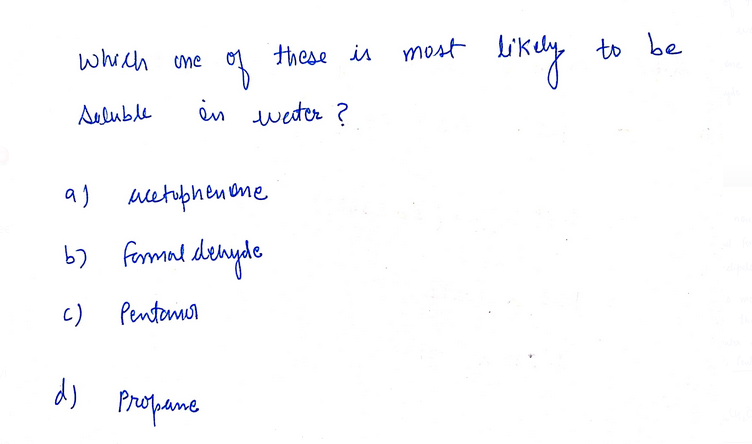 Which one of these is most likely to be
soluble in water?
a) acetophenone
b) formaldehyde
c) Pentanol
d) Propane